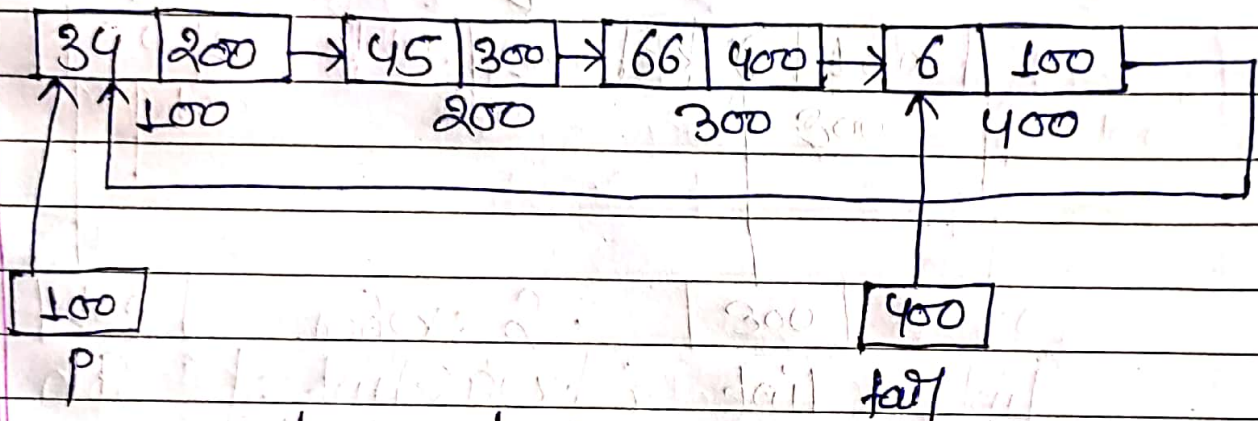 34 200 45 300 66 400 6 100
100 200 300 400
100 400
P tail